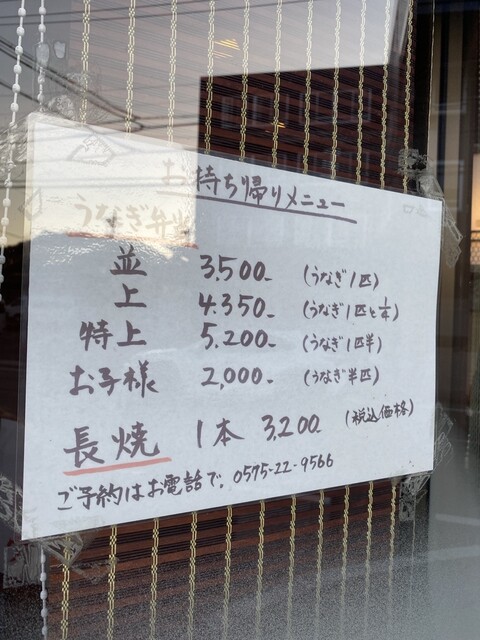 お持ち帰りメニュー
うなぎ弁当
並 3,500- (うなぎ1匹)
上 4,350- (うなぎ1匹と1/4)
特上 5,200- (うなぎ1匹半)
お子様 2,000- (うなぎ半匹)
長焼 1本 3,200 (税込価格)
ご予約はお電話で。0575-22-9566